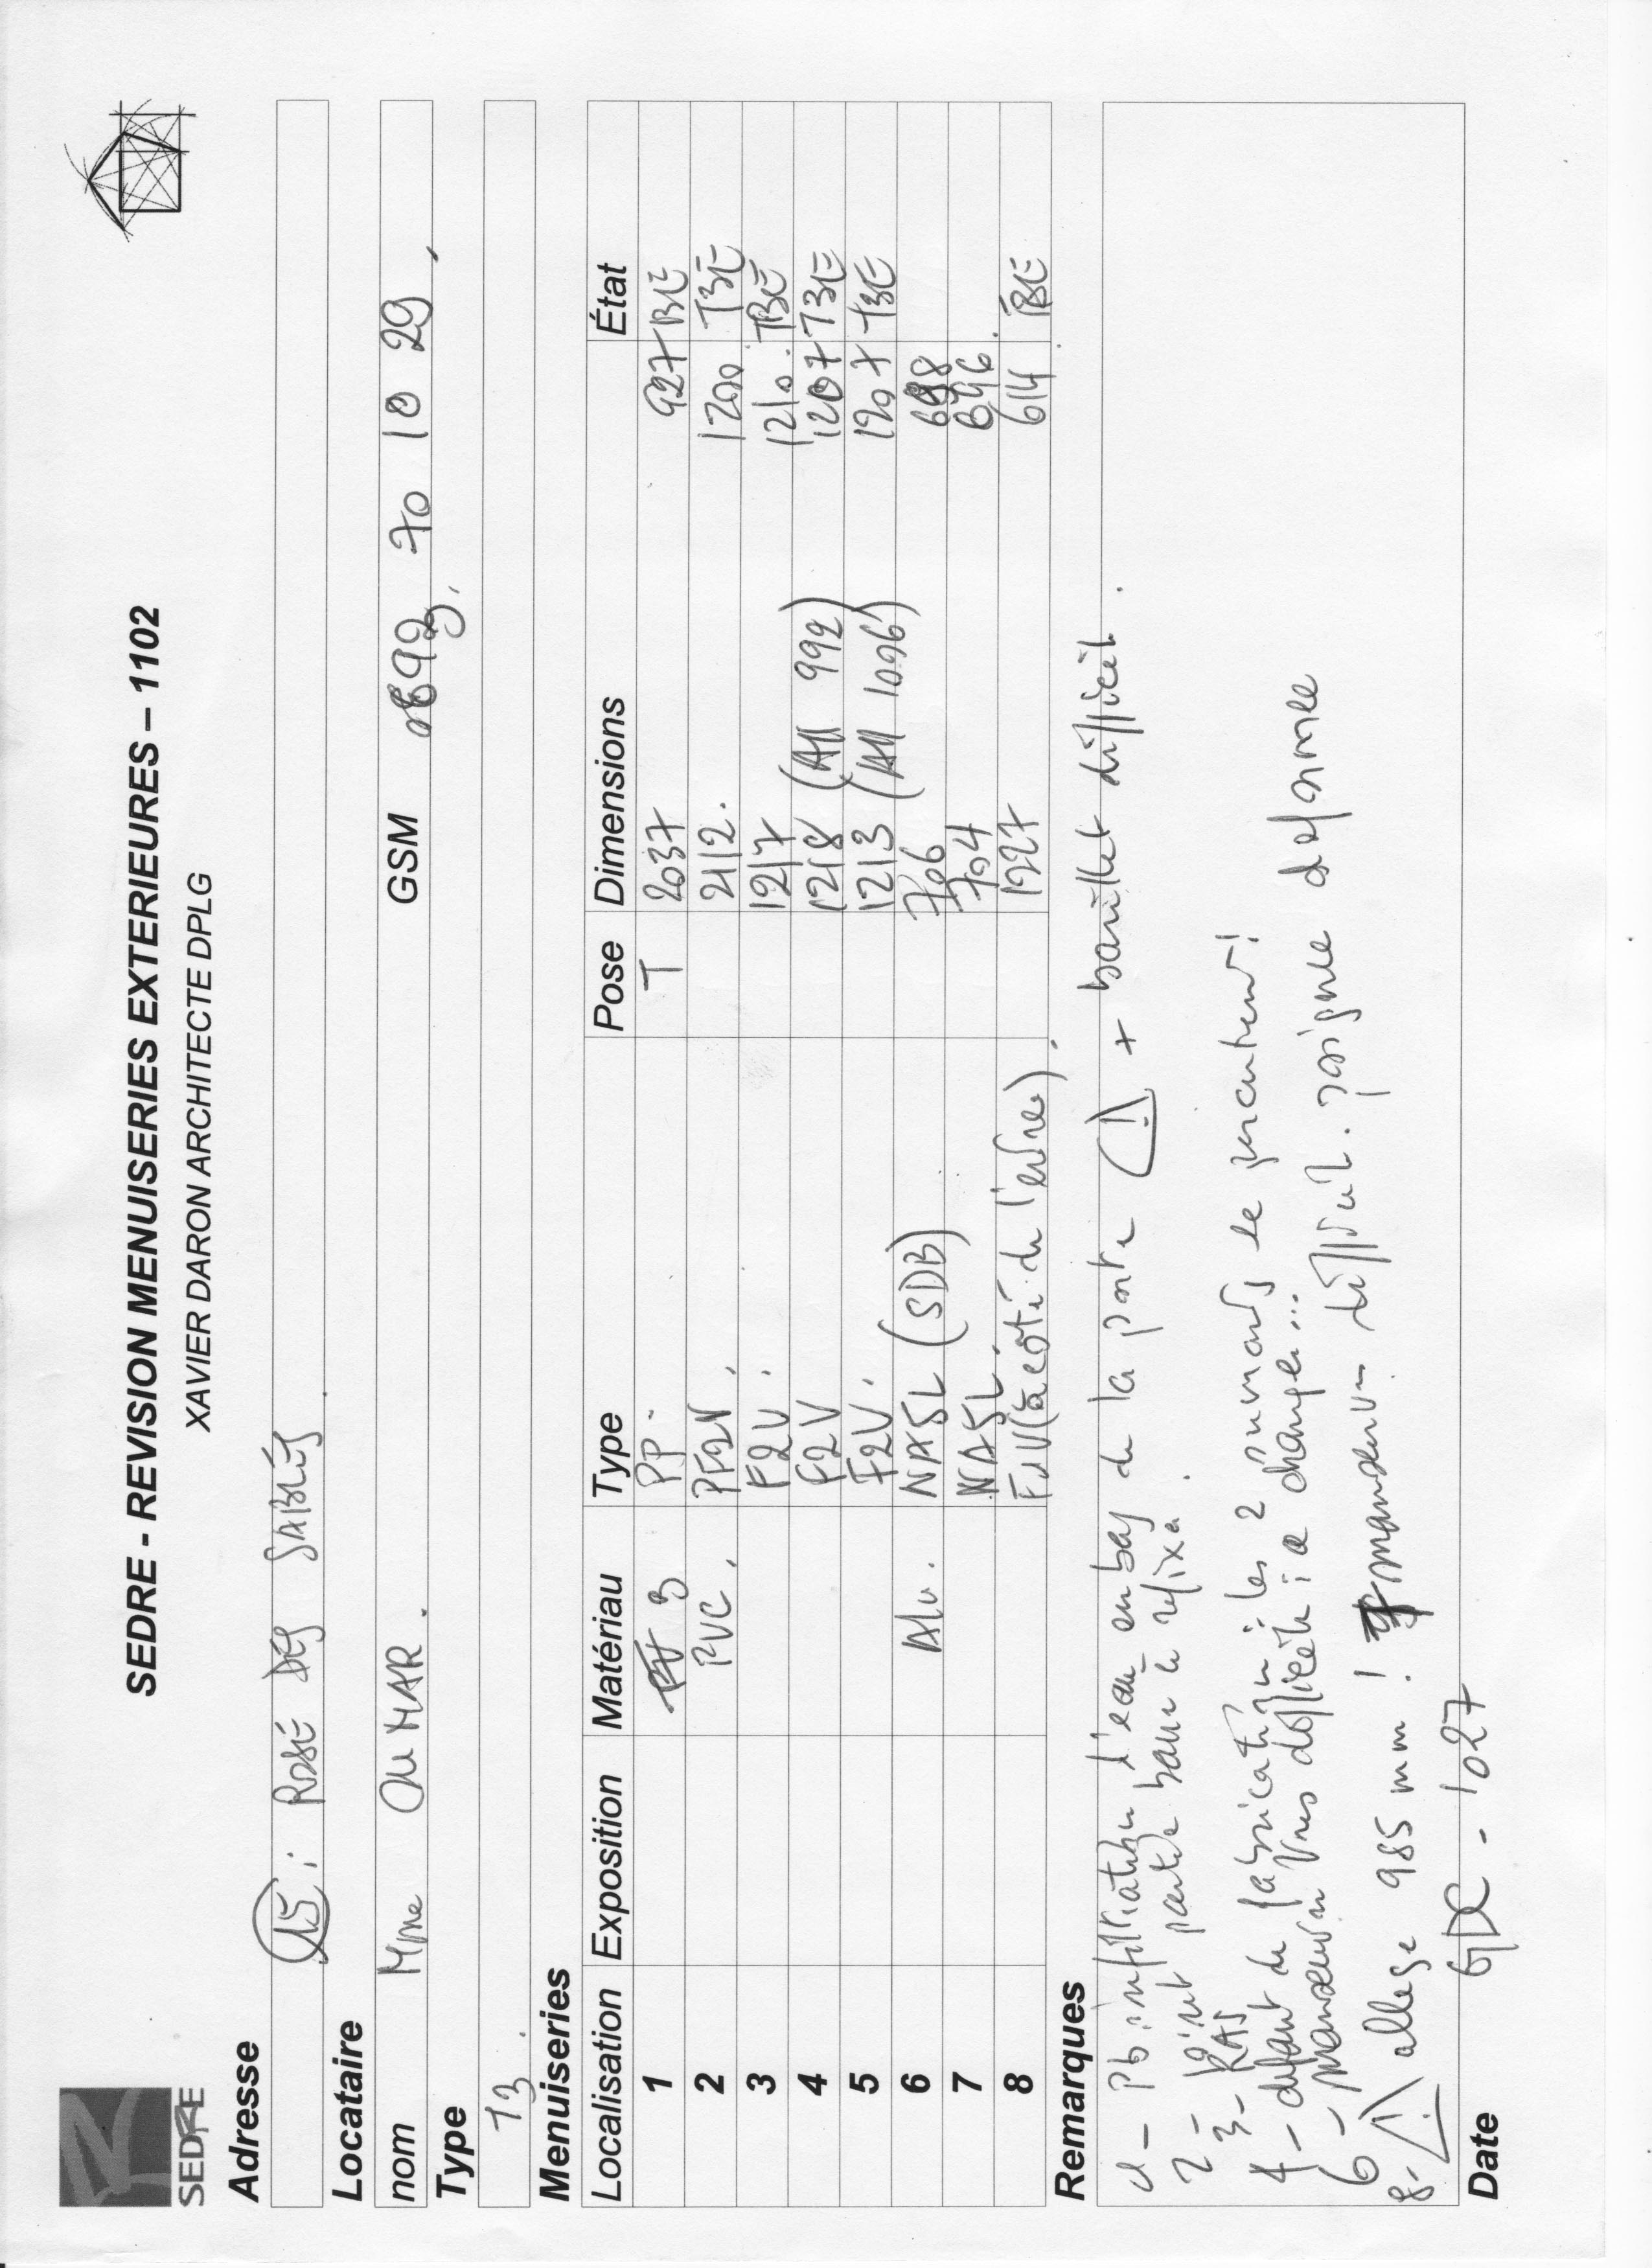 SEDRE
SEDRE - REVISION MENUISERIES EXTERIEURES – 1102
XAVIER DARON ARCHITECTE DPLG
Adresse
15 : ROSÉ DES SABLES
Locataire
nom Mme OUMAR. GSM 0692 70 10 29
Type
T3.
Menuiseries
Localisation Exposition Matériau Type Pose Dimensions État
1 B PP. T 2037 927 TBE
2 PVC. PF2V. 2112. 1200 TBE
3 F2V. 1217 1210. TBE
4 F2V 1218 (All 992) 1207 TBE
5 F2V. 1213 (All 1006) 1207 TBE
6 Alu. NA5L (SDB) 706 698
7 NA5L. 704 696.
8 F1V (à coté de l'entrée). 1227 614 TBE
Remarques
1 - Pb infiltration d'eau en bas de la porte ⚠ + barillet difficile.
2 - joint partie basse à refixer.
3 - RAS
4 - défaut de fabrication : les 2 ouvrants se percutent !
6 - manoeuvre très difficile : à changer...
8 - ⚠ allege 985 mm ! manoeuvre difficile. poignée déformée
Date
GDC - 1027